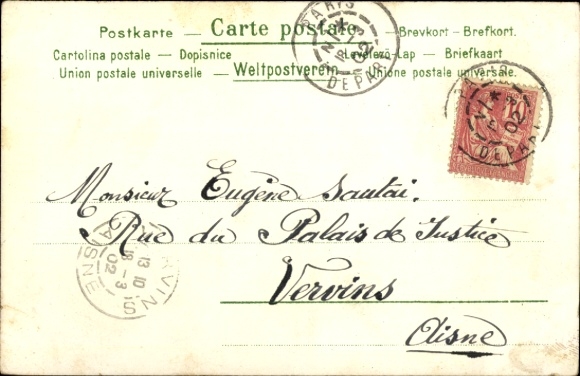 Postkarte — Carte postale — Brevkort - Brefkort.
Cartolina postale — Dopisnice — Levelező-Lap — Briefkaart
Union postale universelle — Weltpostverein — Unione postale universale.
PARIS
DEPART
02
10
PARIS
02
DEPART
Monsieur Eugène Sautai.
Rue du Palais de Justice
Vervins
Aisne
VERVINS
13 10
18 - 3
02
AISNE